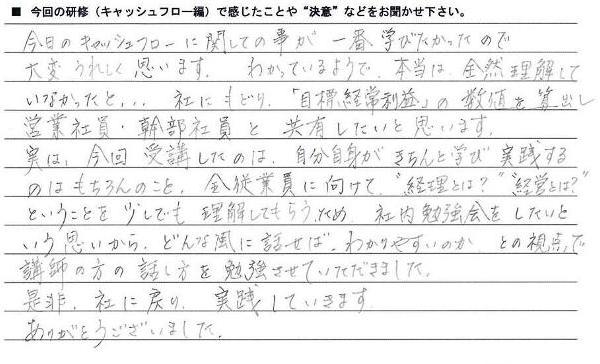 ■ 今回の研修（キャッシュフロー編）で感じたことや“決意”などをお聞かせ下さい。
今日のキャッシュフローに関しての事が 一番 学びたかったので
大変 うれしく 思います。 わかっているようで、本当は、全然理解して
いなかったと... 社に もどり、「目標経常利益」の 数値を 算出し
営業社員・幹部社員 と 共有したいと 思います。
実は、今回 受講したのは、自分自身が きちんと学び 実践する
のはもちろんのこと、全従業員に向けて、“経理とは？”“経営とは？”
ということを 少しでも 理解してもらうため、社内勉強会を したいと
いう思いから、どんな風に 話せば、わかりやすいのか、との視点で
講師の方の 話し方を 勉強させていただきました。
是非、社に戻り、実践していきます。
ありがとうございました。